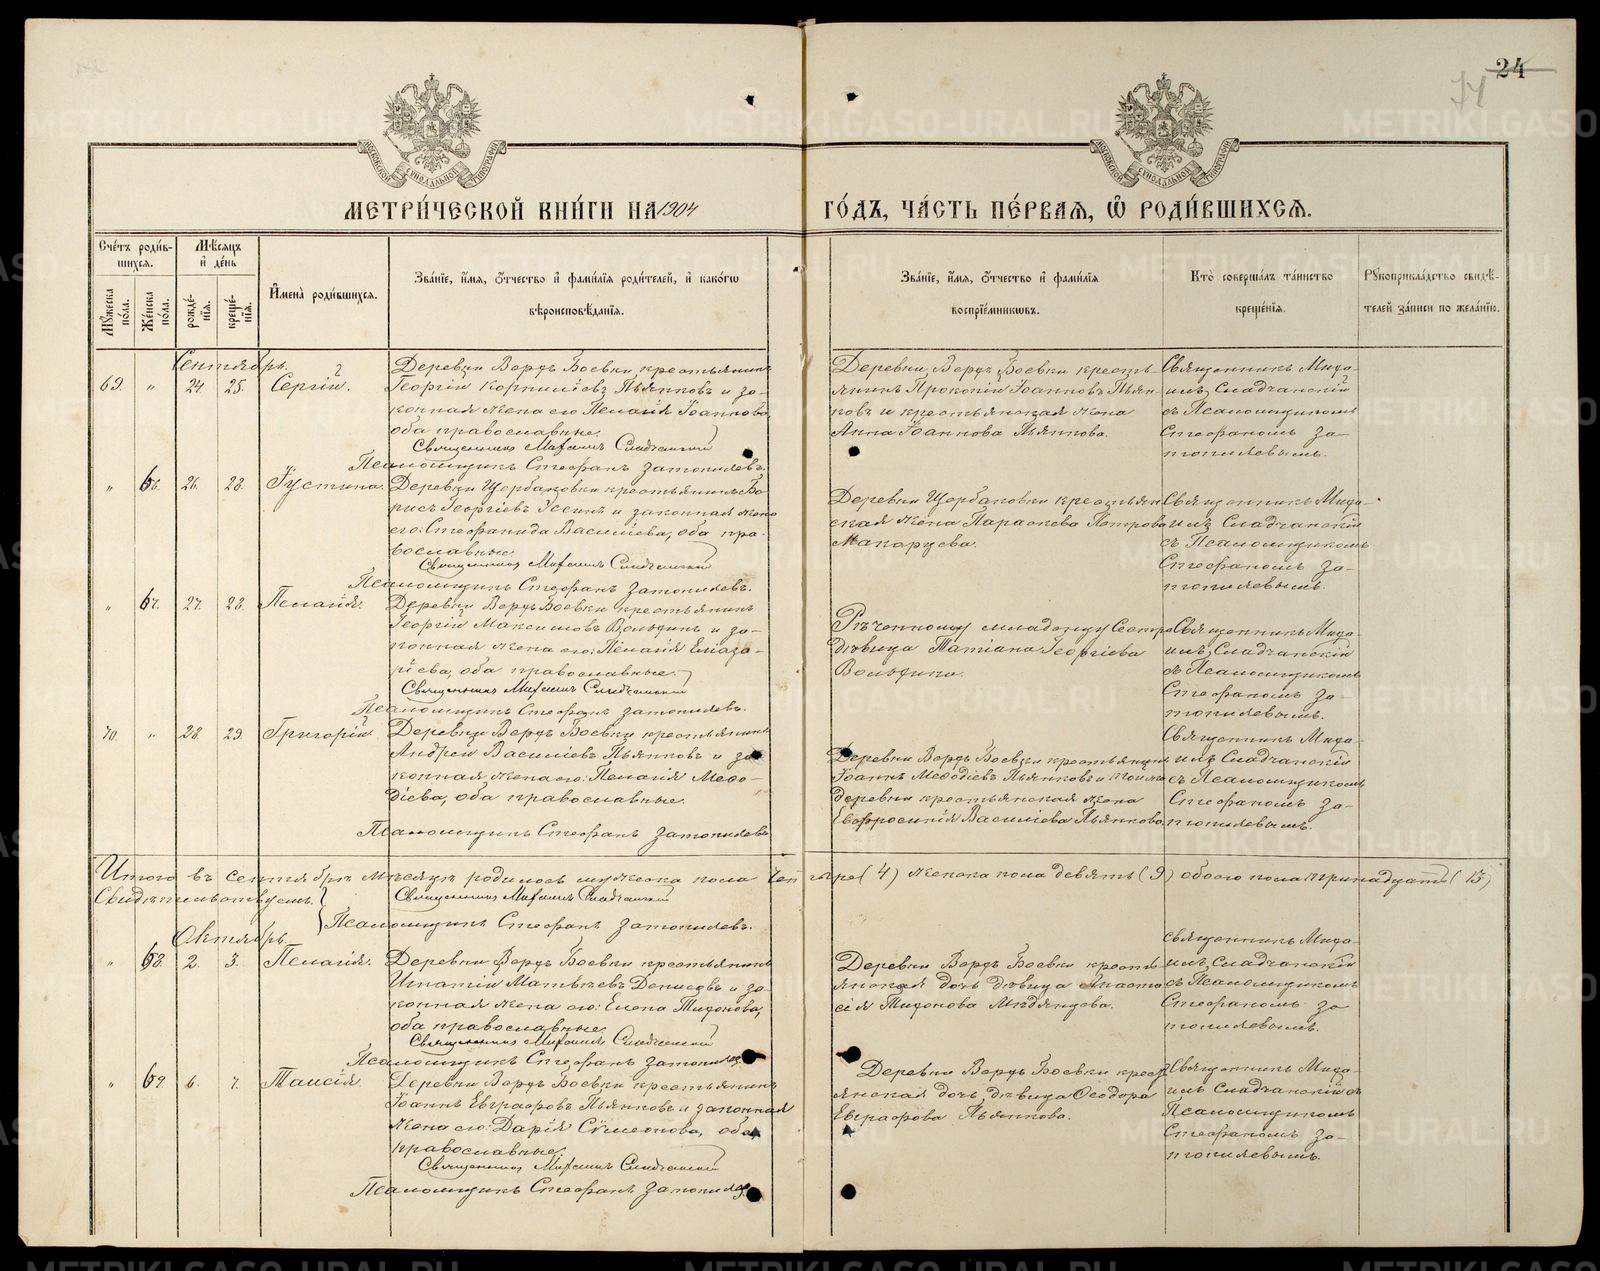 24
74
МОСКОВСКОЙ СѴНОДАЛЬНОЙ ТИПОГРАФІИ
МОСКОВСКОЙ СѴНОДАЛЬНОЙ ТИПОГРАФІИ
МЕТРИ́ЧЕСКОЙ КНИ́ГИ НА 1904 ГО́ДЪ, ЧА́СТЬ ПЕ́РВАѦ, Ѡ РОДИ́ВШИХСѦ.
Сче́тъ роди́в-
шихсѧ.
Мꙋ́жеска по́ла.
Же́нска по́ла.
Мѣ́сѧцъ
и҆ де́нь
рожде́-
нїѧ.
креще́-
нїѧ.
И҆мена̀ роди́вшихсѧ.
Зва́нїе, и҆́мѧ, ѻ҆́тчество и҆ фами́лїѧ роди́телей, и҆ како́гѡ
вѣроисповѣ́данїѧ.
Зва́нїе, и҆́мѧ, ѻ҆́тчество и҆ фами́лїѧ
воспрїе́мникѡвъ.
Кто̀ соверша́лъ та́инство
креще́нїѧ.
Рꙋкоприкла́дство свидѣ́-
телей за́писи по жела́нїю.
Сентябрь.
69. " 24. 25. Сергій.
Деревни Верхъ Боевки крестьянинъ
Георгій Корниліевъ Пьянковъ и за-
конная жена его Пелагія Іоаннова,
оба православные.
Священникъ Михаилъ Сладчанскій
Псаломщикъ Стефанъ Затопляевъ.
Деревни Верхъ Боевки кресть-
янинъ Прокопій Іоанновъ Пьян-
ковъ и крестьянская жена
Анна Іоаннова Пьянкова.
Священникъ Миха-
илъ Сладчанскій
съ Псаломщикомъ
Стефаномъ За-
топляевымъ.
" 66. 26. 28. Іустина.
Деревни Щербаковки крестьянинъ Бо-
рисъ Георгіевъ и законная жена
его: Стефанида Василіева, оба пра-
вославные.
Священникъ Михаилъ Сладчанскій
Псаломщикъ Стефанъ Затопляевъ.
Деревни Щербаковки крестьян-
ская жена Параскева Петрова
Священникъ Миха-
илъ Сладчанскій
съ Псаломщикомъ
Стефаномъ За-
топляевымъ.
" 67. 27. 28. Пелагія.
Деревни Верхъ Боевки крестьянинъ
Георгій Максимовъ и за-
конная жена его: Пелагія Елиаза-
рієва, оба православные.
Священникъ Михаилъ Сладчанскій
Псаломщикъ Стефанъ Затопляевъ.
Реченному младенцу сестра
дѣвица Татіана Георгіева
Священникъ Миха-
илъ Сладчанскій
съ Псаломщикомъ
Стефаномъ За-
топляевымъ.
70. " 28. 29. Григорій.
Деревни Верхъ Боевки крестьянинъ
Андрей Василіевъ Пьянковъ и за-
конная жена его: Пелагія Мефо-
діева, оба православные.
Псаломщикъ Стефанъ Затопляевъ
Деревни Верхъ Боевки крестьянинъ
Іоаннъ Мефодіевъ Пьянковъ и той же
деревни крестьянская жена
Евфросинія Василіева Пьянкова.
Священникъ Миха-
илъ Сладчанскій
съ Псаломщикомъ
Стефаномъ За-
топляевымъ.
Итого въ сентябрѣ мѣсяцѣ родилось мужеска пола четыре (4) женска пола девять (9) обоего пола тринадцать (13)
Свидѣтельствуемъ:
Священникъ Михаилъ Сладчанскій
Псаломщикъ Стефанъ Затопляевъ.
Октябрь
" 68. 2. 3. Пелагія.
Деревни Верхъ Боевки крестьянинъ
Игнатій Матвѣевъ Денисовъ и за-
конная жена его: Елена Тихонова,
оба православные.
Священникъ Михаилъ Сладчанскій
Псаломщикъ Стефанъ Затопляевъ
Деревни Верхъ Боевки кресть-
янская дочь дѣвица Анаста-
сія Тихонова
Священникъ Миха-
илъ Сладчанскій
съ Псаломщикомъ
Стефаномъ За-
топляевымъ.
" 69. 6. 7. Таисія.
Деревни Верхъ Боевки крестьянинъ
Іоаннъ Евграфовъ Пьянковъ и законная
жена его: Дарія Сѵмеонова, оба
православные.
Священникъ Михаилъ Сладчанскій
Псаломщикъ Стефанъ Затопляевъ
Деревни Верхъ Боевки крест-
янская дочь, дѣвица Ѳеодора
Евграфова Пьянкова.
Священникъ Миха-
илъ Сладчанскій съ
Псаломщикомъ
Стефаномъ За-
топляевымъ.
METRIKI.GASO-URAL.RU